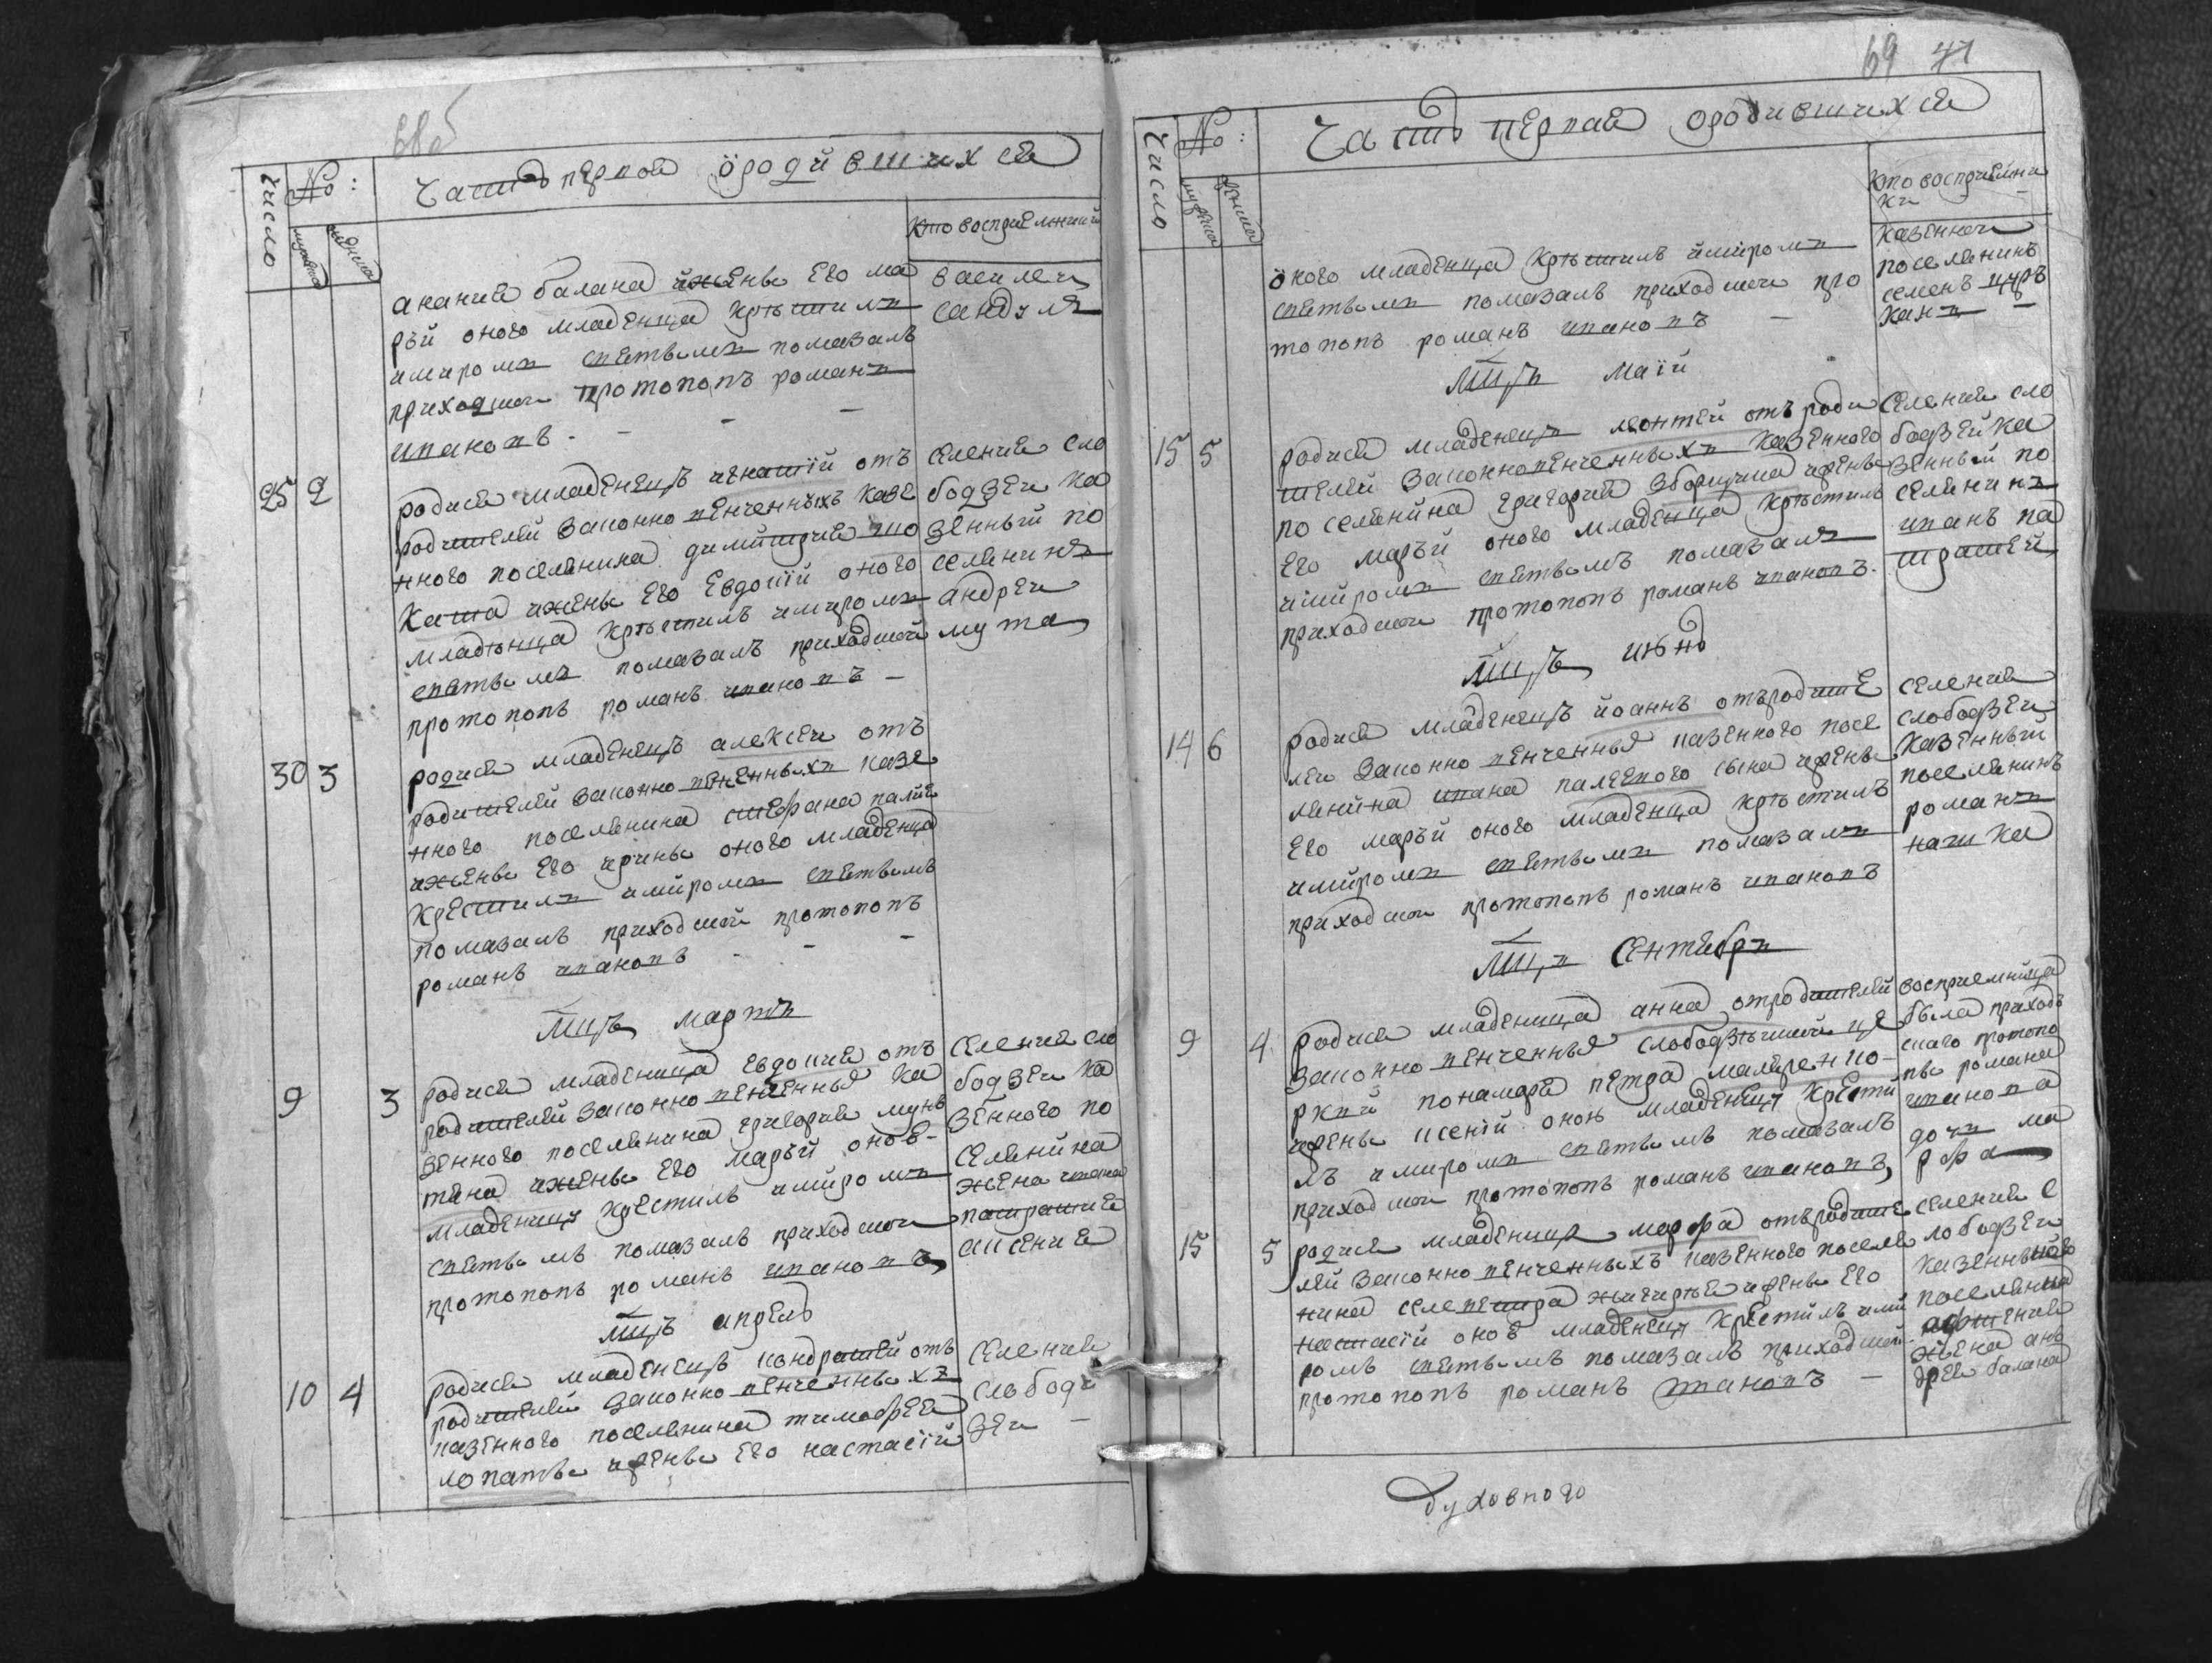 68 об
Число
No:
мужеска
женска
Часть первой о родившихся
Кто восприемники
анания балана и жены его ма
рьи оного младенца крестилъ
и миромъ святымъ помазалъ
приходской протопопъ романъ
ивановъ
василеи
сандул
25 2
родися младенецъ игнатій отъ
родителей законно венченныхъ казе
нного поселянина димитрия шо
Каша и жены его Евдокій оного
младенца крестилъ и миромъ
святымъ помазалъ приходской
протопопъ романъ ивановъ
селения сло
бодзеи ка
зенный по
селянинъ
андреи
мута
30 3
родися младенецъ алексеи отъ
родителей законно венченныхъ казе
нного поселянина стефана палия
и жены его ирины оного младенца
крестилъ и миромъ святымъ
помазалъ приходской протопопъ
романъ ивановъ
мцъ мартъ
9 3
родися младеница евдокия отъ
родителей законно венченныя ка
зенного поселянина григория мунь
тяна и жены его марьи оноя
младеницу крестилъ и миромъ
святымъ помазалъ приходской
протопопъ романъ ивановъ
селения сло
бодзеи ка
зенного по
селянина
жена ивана
патрашия
аксения
мцъ апрель
10 4
родися младенецъ кондратей отъ
родителей законно венченныхъ
казенного поселянина тимофея
лопаты и жены его настасий
селения
слободи
зеи
69 71
Число
No:
мужеска
женска
Часть первая о родившихся
Кто восприемни
ки
оного младенца крестилъ и миромъ
святымъ помазалъ приходской про
топопъ романъ ивановъ
казенной
поселянинъ
семенъ цур
канъ
мцъ маій
15 5
родися младенецъ леонтей отъ роди
телей законновенченныхъ казенного
поселянина григория зборщика и жены
его марьи оного младенца крестилъ
и миромъ святымъ помазалъ
приходской протопопъ романъ ивановъ.
селения сло
бодзеи ка
зенный по
селянинъ
иванъ па
трашей
мцъ июнь
14 6
родися младенецъ иоаннъ отъ родите
леи законно венченныя казенного посе
лянина ивана палевого сына и жены
его марьи оного младенца крестилъ
и миромъ святымъ помазалъ
приходской протопопъ романъ ивановъ
селения
слободзеи
казенный
поселянинъ
романъ
нашка
мцъ сентября
9 4
родися младеница анна отродителей
законно венченныя слободзеиской це
ркви понамаря петра маляренко
и жены ксеній оною младеницу крести
лъ и миромъ святымъ помазалъ
приходской протопопъ романъ ивановъ,
восприемница
была приход
скаго протопо
пы романа
иванова
дочь ма
рфа
15 5
родися младеница марфа отъ родите
лей законно венченныхъ казенного поселя
нина и жены его
настасій оноя младеницу крестилъ и ми
ромъ святымъ помазалъ приходской
протопопъ романъ ивановъ
селения с
лободзеи
казенного
поселянина
жена ан
дрея балана
духовного